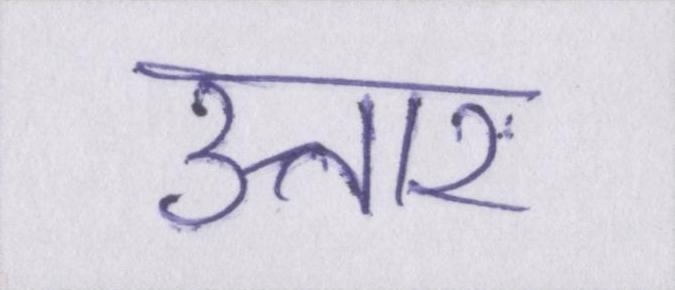 उत्तार